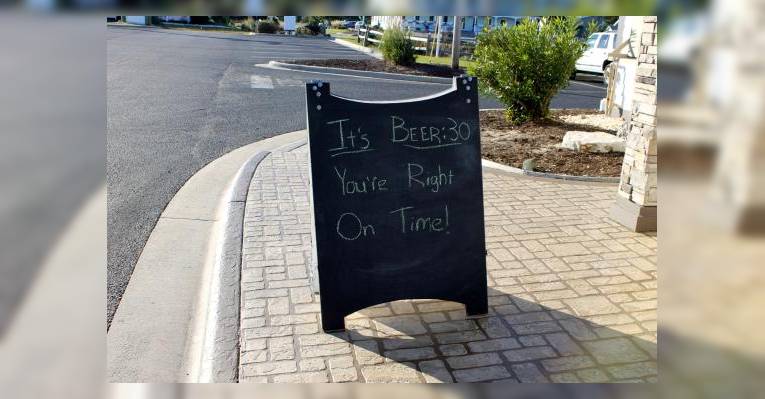 It's Beer:30
You're Right
On Time!